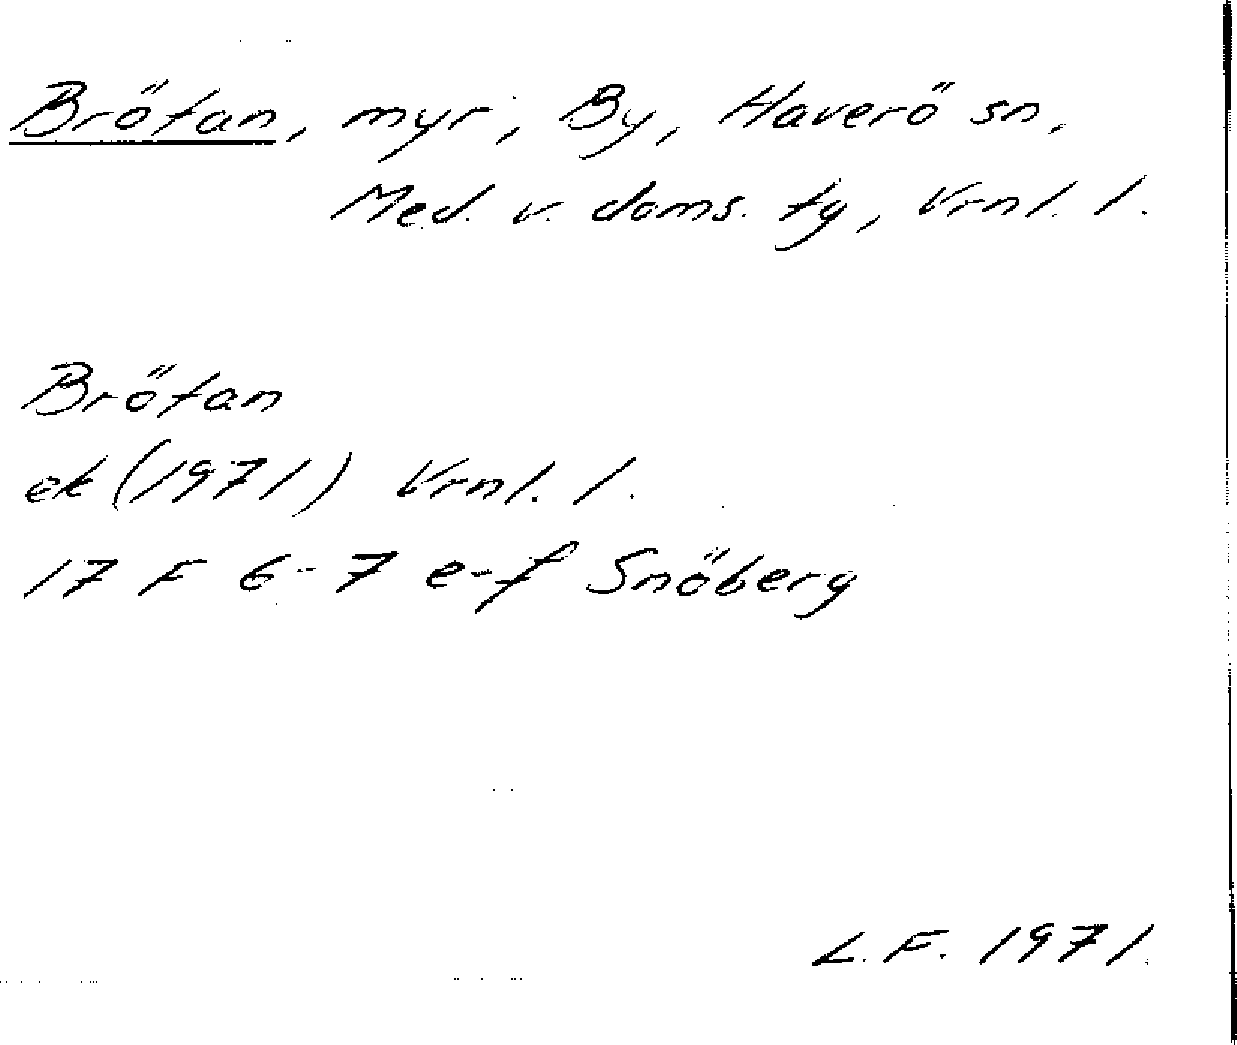 Brötan, myr, By, Haverö sn,
Med. v. doms. tg, Vrnl. l.
Brötan
ek (1971) Vrnl. l.
17 F 6-7 e-f Snöberg
L. F. 1971